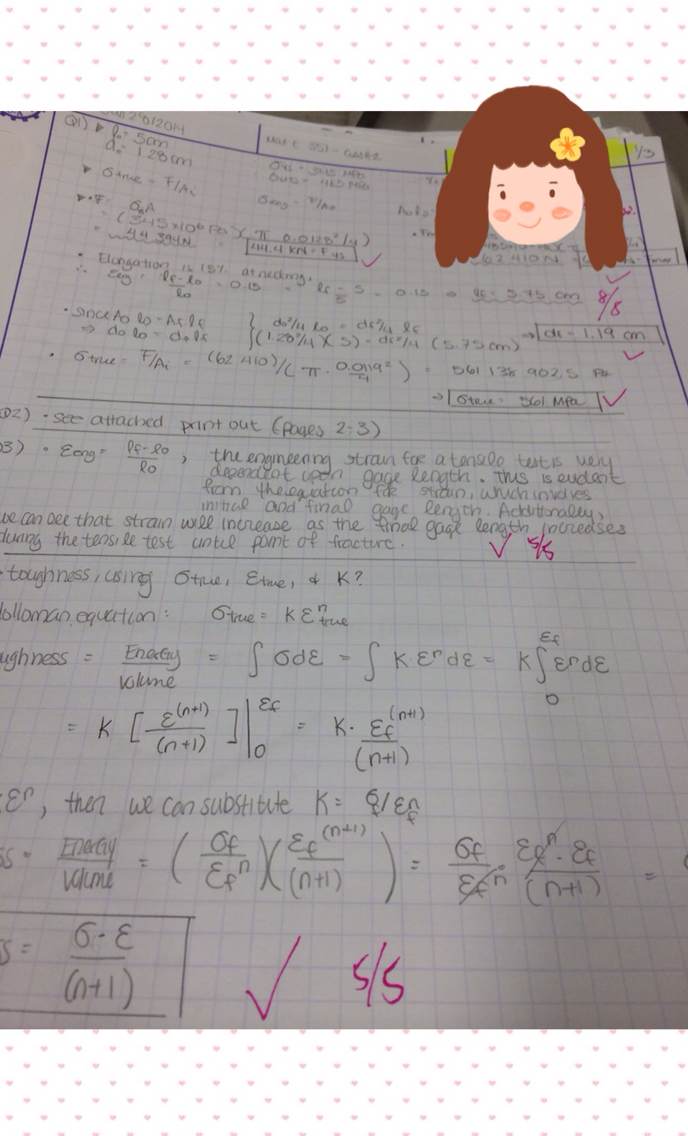 Q1) l₀ = 5cm
d₀ = 1.28cm
1/3
σtrue = F/Ai
σeng = F/A₀
F = σ₀A
= (345 x10⁶ Pa)(π 0.0128²/4)
= 44 394N = 44.4 kN = Fys
62 410 N
• Elongation is 15% at necking.
∴ εeng = lf-l₀/l₀ = 0.15 = lf - 5/5 = 0.15 → lf = 5.75 cm 8/8
• Since A₀ l₀ = Af lf { d₀²/4 l₀ = df²/4 lf
⇒ d₀ l₀ = df lf {(1.28²/4)(5) = df²/4 (5.75cm) → df = 1.19 cm
• σtrue = F/Ai = (62 410)/(π · 0.0119²/4) = 561 138 902.5 Pa
→ σtrue = 561 MPa
Q2) • see attached print out (pages 2-3)
3) • εeng = lf-l₀/l₀, the engineering strain for a tensile test is very
dependent upon gage length. This is evident
from the equation for strain, which involves
initial and final gage length. Additionally,
we can see that strain will increase as the final gage length increases
during the tensile test until point of fracture. 5/5
toughness, using σtrue, εtrue, & K?
olloman equation: σtrue = K εⁿtrue
ughness = Energy/Volume = ∫ σdε = ∫ K εⁿdε = K ∫₀^εf εⁿdε
= K [ε^(n+1)/(n+1)] |₀^εf = K · εf^(n+1)/(n+1)
εⁿ, then we can substitute K = σf/εfⁿ
ss = Energy/Volume = (σf/εfⁿ)(εf^(n+1)/(n+1)) = σf/εfⁿ · εfⁿ · εf/(n+1) =
s = σ · ε/(n+1) 5/5